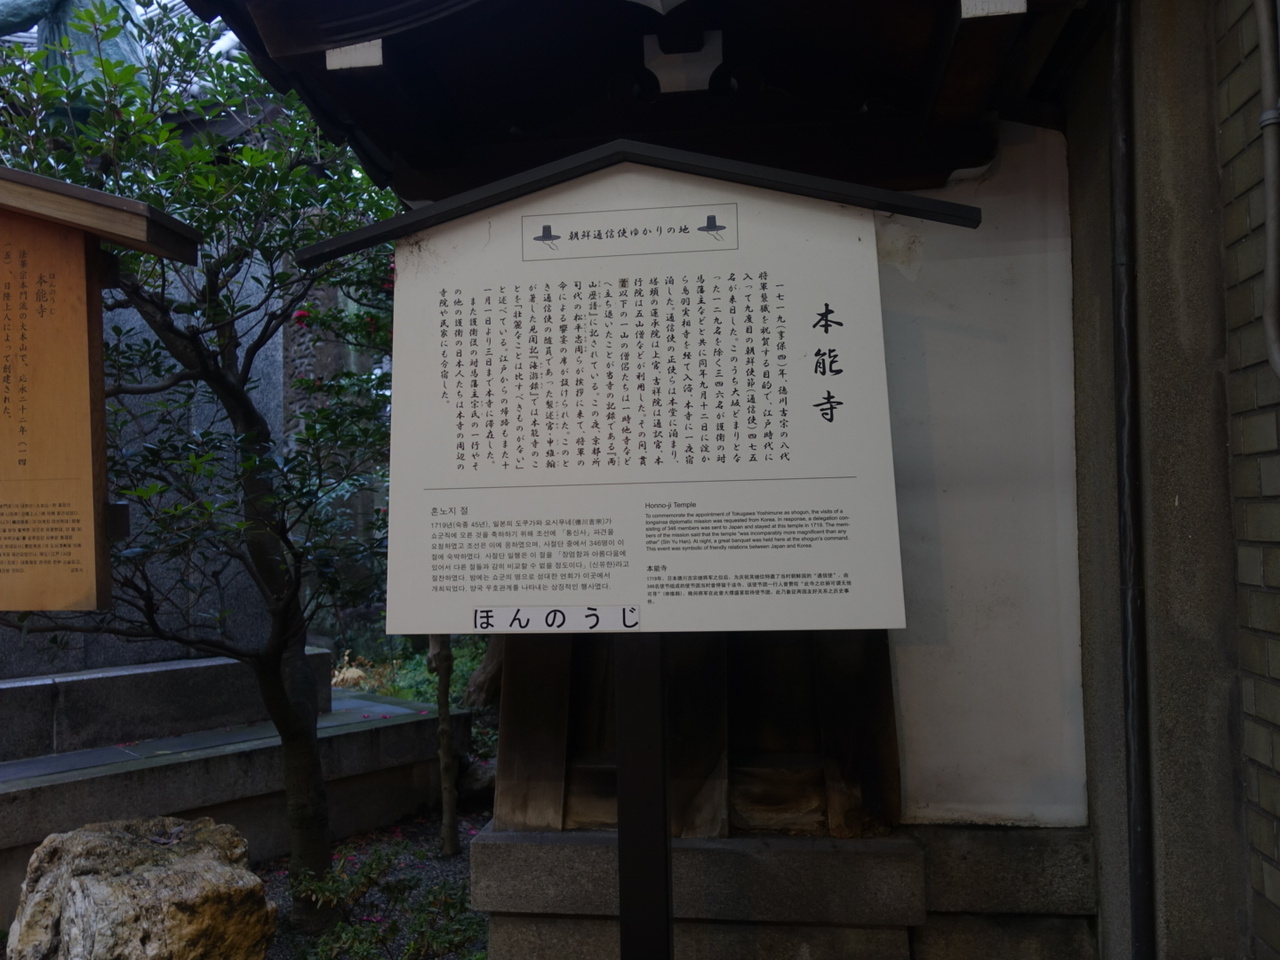 朝鮮通信使ゆかりの地
本能寺
一七一九(享保四)年、徳川吉宗の八代
将軍襲職を祝賀する目的で、江戸時代に
入って九度目の朝鮮使節(通信使)四七五
名が来日した。このうち大坂どまりとな
った一二九名を除く三四六名が護衛の対
馬藩主などと共に同年九月十二日に淀か
ら鳥羽実相寺を経て入洛、本寺に一夜宿
泊した。通信使の正使らは本堂に泊まり、
塔頭の蓮承院は上官、吉祥院は通訳官、本
行院は五山僧などが利用した。その間、貫
首以下の一山の僧侶たちは一時他寺など
へ立ち退いたことが当寺の記録である『両
山歴譜』に記されている。この夜、京都所
司代の松平忠周らが挨拶に来て、将軍の
命による饗宴の席が設けられた。このと
き通信使の随員であった製述官・申維翰
が著した見聞記『海游録』では本能寺のこ
とを「壮麗なことは比すべきものがない」
と述べている。江戸からの帰路もまた十
一月一日より三日まで本寺に滞在した。
また護衛役の対馬藩主宗氏の一行やそ
の他の護衛の日本人たちは本寺の周辺の
寺院や民家にも分宿した。
혼노지 절
1719년(숙종 45년), 일본의 도쿠가와 요시무네(德川吉宗)가
쇼군직에 오른 것을 축하하기 위해 조선에 「통신사」 파견을
요청하였고 조선은 이에 응하였으며, 사절단 중에서 346명이 이
절에 숙박하였다. 사절단 일행은 이 절을 「장엄함과 아름다움에
있어서 다른 절들과 감히 비교할 수 없을 정도이다」(신유한)라고
절찬하였다. 밤에는 쇼군의 명으로 성대한 연회가 이곳에서
개최되었다. 양국 우호관계를 나타내는 상징적인 행사였다.
Honno-ji Temple
To commemorate the appointment of Tokugawa Yoshimune as shogun, the visits of a
longsense diplomatic mission was requested from Korea. In response, a delegation con-
sisting of 346 members was sent to Japan and stayed at this temple in 1719. The mem-
bers of the mission said that the temple "was incomparably more magnificent than any
other" (Sin Yu Han). At night, a great banquet was held here at the shogun's command.
This event was symbolic of friendly relations between Japan and Korea.
本能寺
ほんのうじ
ほんのうじ
本能寺
法華宗本門流の大本山で、応永二十二年(一四
一五)、日隆上人によって創建された。